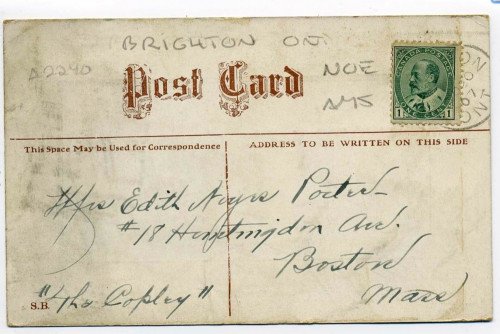 BRIGHTON ONT
A2240
Post Card
NOE
CANADA POSTAGE
1 ONE CENT 1
This Space May be Used for Correspondence
ADDRESS TO BE WRITTEN ON THIS SIDE
Edith Noyes Porter
#18 Huntingdon Ave.
Boston
"The Copley"
Mass
S.B.